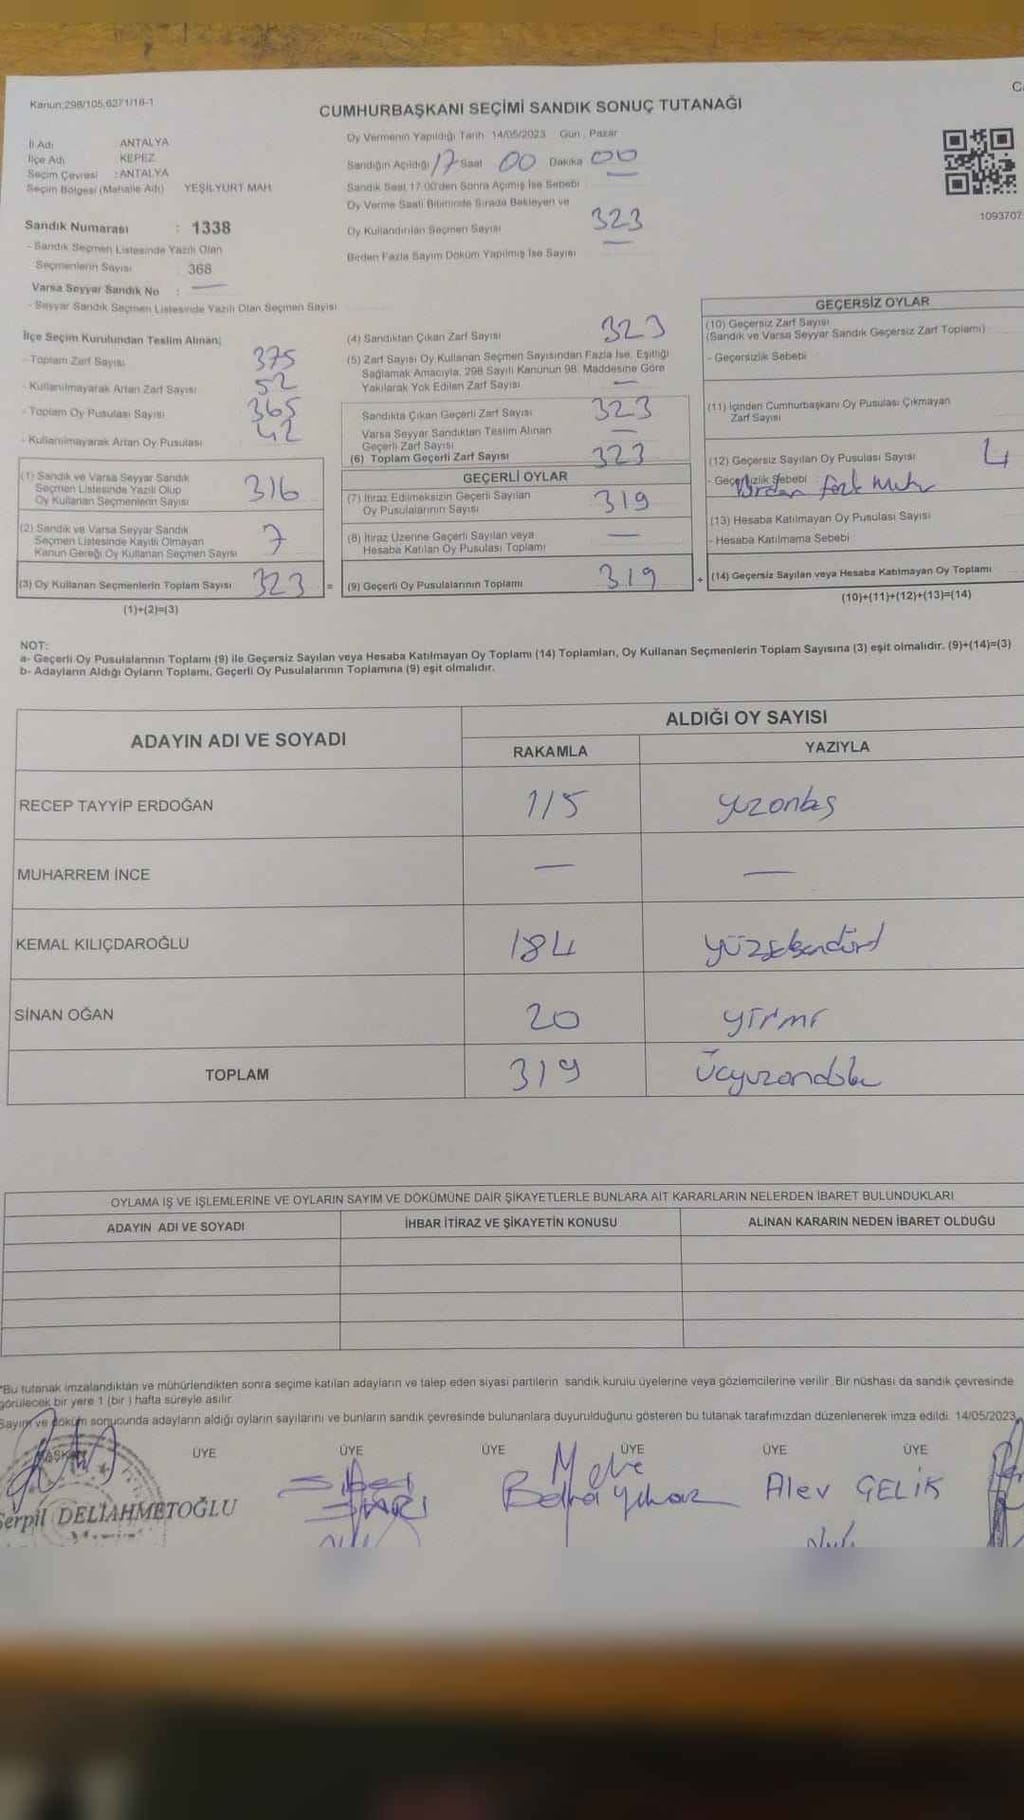 Kanun;298/105,6271/18-1
CUMHURBAŞKANI SEÇİMİ SANDIK SONUÇ TUTANAĞI
İl Adı ANTALYA
İlçe Adı KEPEZ
Seçim Çevresi : ANTALYA
Seçim Bölgesi (Mahalle Adı) YEŞİLYURT MAH
Sandık Numarası : 1338
- Sandık Seçmen Listesinde Yazılı Olan
Seçmenlerin Sayısı 368
Varsa Seyyar Sandık No : —
- Seyyar Sandık Seçmen Listesinde Yazılı Olan Seçmen Sayısı
Oy Vermenin Yapıldığı Tarih 14/05/2023 Gün , Pazar
Sandığın Açıldığı 17 Saat 00 Dakika 00
Sandık Saat 17.00'den Sonra Açımış İse Sebebi
Oy Verme Saati Bitiminde Sırada Bekleyen ve
Oy Kullandırılan Seçmen Sayısı 323
Birden Fazla Sayım Döküm Yapılmış İse Sayısı —
1093707
İlçe Seçim Kurulundan Teslim Alınan;
- Toplam Zarf Sayısı 375
- Kullanılmayarak Artan Zarf Sayısı 52
- Toplam Oy Pusulası Sayısı 365
- Kullanılmayarak Artan Oy Pusulası 42
(1) Sandık ve Varsa Seyyar Sandık
Seçmen Listesinde Yazılı Olup
Oy Kullanan Seçmenlerin Sayısı 316
(2) Sandık ve Varsa Seyyar Sandık
Seçmen Listesinde Kayıtlı Olmayan
Kanun Gereği Oy Kullanan Seçmen Sayısı 7
(3) Oy Kullanan Seçmenlerin Toplam Sayısı 323 =
(1)+(2)=(3)
(4) Sandıktan Çıkan Zarf Sayısı 323
(5) Zarf Sayısı Oy Kullanan Seçmen Sayısından Fazla İse, Eşitliği
Sağlamak Amacıyla, 298 Sayılı Kanunun 98. Maddesine Göre
Yakılarak Yok Edilen Zarf Sayısı —
Sandıkta Çıkan Geçerli Zarf Sayısı 323
Varsa Seyyar Sandıktan Teslim Alınan
Geçerli Zarf Sayısı —
(6) Toplam Geçerli Zarf Sayısı 323
GEÇERLİ OYLAR
(7) İtiraz Edilmeksizin Geçerli Sayılan
Oy Pusulalarının Sayısı 319
(8) İtiraz Üzerine Geçerli Sayılan veya
Hesaba Katılan Oy Pusulası Toplamı —
(9) Geçerli Oy Pusulalarının Toplamı 319 +
GEÇERSİZ OYLAR
(10) Geçersiz Zarf Sayısı
(Sandık ve Varsa Seyyar Sandık Geçersiz Zarf Toplamı)
- Geçersizlik Sebebi
(11) İçinden Cumhurbaşkanı Oy Pusulası Çıkmayan
Zarf Sayısı
(12) Geçersiz Sayılan Oy Pusulası Sayısı 4
- Geçersizlik Sebebi
(13) Hesaba Katılmayan Oy Pusulası Sayısı
- Hesaba Katılmama Sebebi
(14) Geçersiz Sayılan veya Hesaba Katılmayan Oy Toplamı
(10)+(11)+(12)+(13)=(14)
NOT:
a- Geçerli Oy Pusulalarının Toplamı (9) ile Geçersiz Sayılan veya Hesaba Katılmayan Oy Toplamı (14) Toplamları, Oy Kullanan Seçmenlerin Toplam Sayısına (3) eşit olmalıdır. (9)+(14)=(3)
b- Adayların Aldığı Oyların Toplamı, Geçerli Oy Pusulalarının Toplamına (9) eşit olmalıdır.
ADAYIN ADI VE SOYADI
ALDIĞI OY SAYISI
RAKAMLA YAZIYLA
RECEP TAYYİP ERDOĞAN 115 yuzonbeş
MUHARREM İNCE — —
KEMAL KILIÇDAROĞLU 184 yüzseksendört
SİNAN OĞAN 20 yirmi
TOPLAM 319 Üçyüzondoku
OYLAMA İŞ VE İŞLEMLERİNE VE OYLARIN SAYIM VE DÖKÜMÜNE DAİR ŞİKAYETLERLE BUNLARA AİT KARARLARIN NELERDEN İBARET BULUNDUKLARI
ADAYIN ADI VE SOYADI İHBAR İTİRAZ VE ŞİKAYETİN KONUSU ALINAN KARARIN NEDEN İBARET OLDUĞU
*Bu tutanak imzalandıktan ve mühürlendikten sonra seçime katılan adayların ve talep eden siyasi partilerin sandık kurulu üyelerine veya gözlemcilerine verilir. Bir nüshası da sandık çevresinde
görülecek bir yere 1 (bir ) hafta süreyle asılır.
Sayım ve döküm sonucunda adayların aldığı oyların sayılarını ve bunların sandık çevresinde bulunanlara duyurulduğunu gösteren bu tutanak tarafımızdan düzenlenerek imza edildi. 14/05/2023
ÜYE ÜYE ÜYE ÜYE ÜYE ÜYE
Serpil DELİAHMETOĞLU
Alev ÇELİK